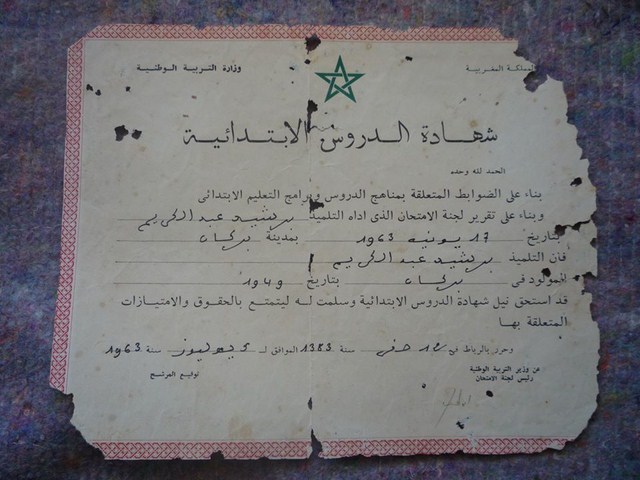 المملكة المغربية
وزارة التربية الوطنية
شهادة الدروس الابتدائية
الحمد لله وحده
بناء على الضوابط المتعلقة بمناهج الدروس وبرامج التعليم الابتدائى
وبناء على تقرير لجنة الامتحان الذى اداه التلميذ برشيد عبد الكريم
بتاريخ 17 يونيه 1963 بمدينة بركان
فان التلميذ برشيد عبد الكريم
المولود فى بركان بتاريخ 1949
قد استحق نيل شهادة الدروس الابتدائية وسلمت له ليتمتع بالحقوق والامتيازات
المتعلقة بها
وحرر بالرباط في 12 صفر سنة 1383 الموافق لـ 5 يوليوز سنة 1963
عن وزير التربية الوطنية
رئيس لجنة الامتحان
توقيع المرشح